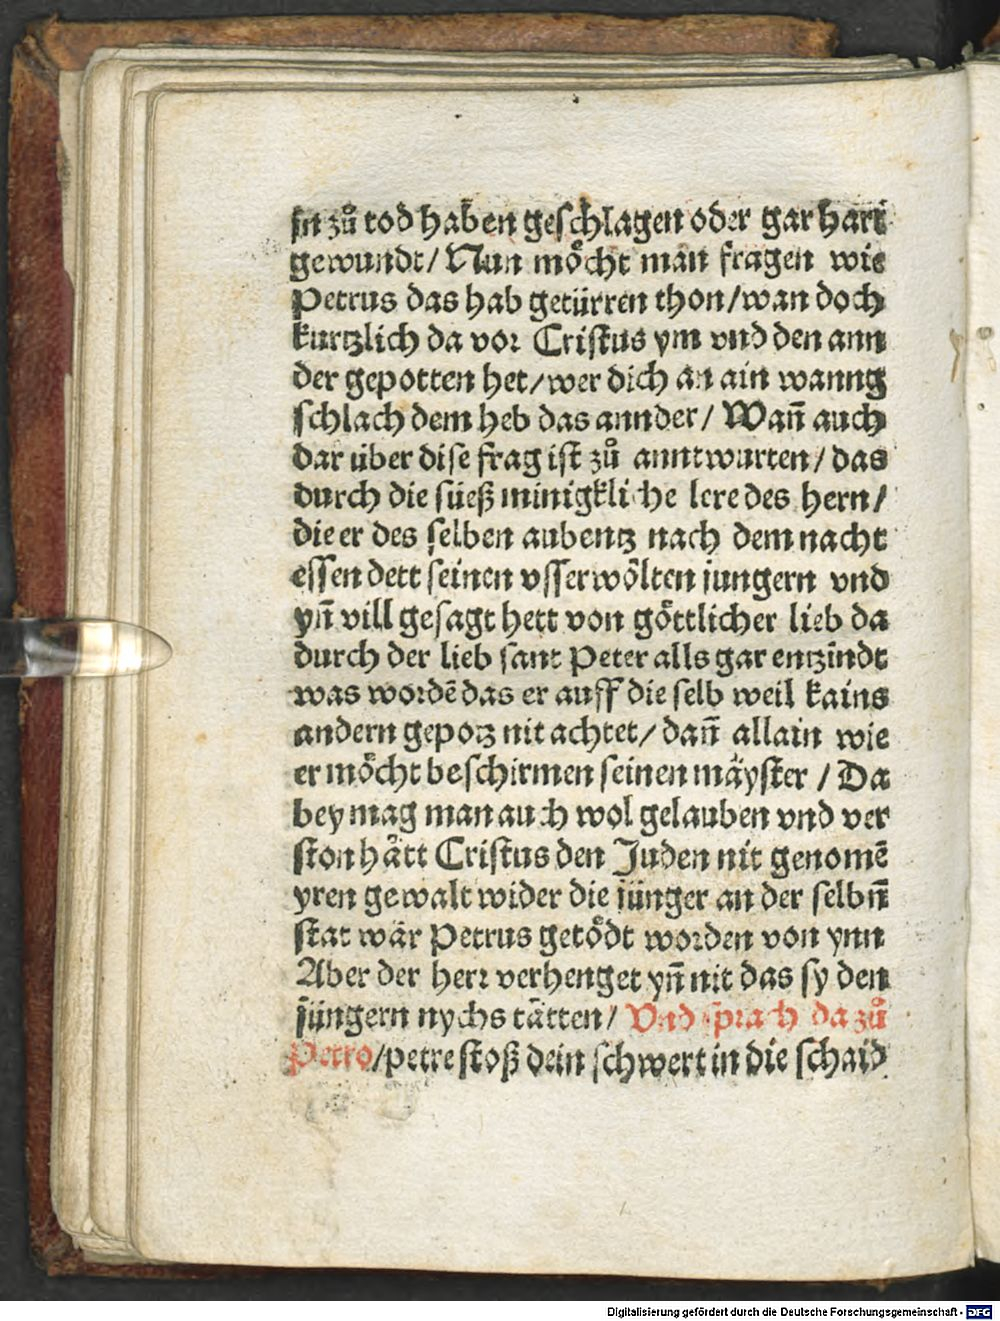 jn zů tod haben geschlagen oder gar hart
gewundt/ Nun möcht man fragen wie
Petrus das hab getürren thon/wan doch
kurtzlich da vor Cristus ym vnd den ann
der gepotten het/wer dich an ain wanng
schlach dem heb das annder/ Wan̄ auch
dar über dise frag ist zů anntwurten/das
durch die süeß minigkliche lere des hern/
die er des selben aubentz nach dem nacht
essen dett seinen vsserwölten jungern vnd
yn̄ vill gesagt hett von göttlicher lieb da
durch der lieb sant Peter alls gar entzündt
was wordē das er auff die selb weil kains
andern gepotz nit achtet/ dan̄ allain wie
er möcht beschirmen seinen mäyster /Da
bey mag man auch wol gelauben vnd ver
ston hått Cristus den Juden nit genomē
yren gewalt wider die jünger an der selbn̄
stat wär Petrus getödt worden von ynn
Aber der herr verhenget yn̄ nit das sy den
jüngern nychs tätten/ Vnd sprach da zů
Petro/petre stoß dein schwert in die schaid
Digitalisierung gefördert durch die Deutsche Forschungsgemeinschaft - DFG